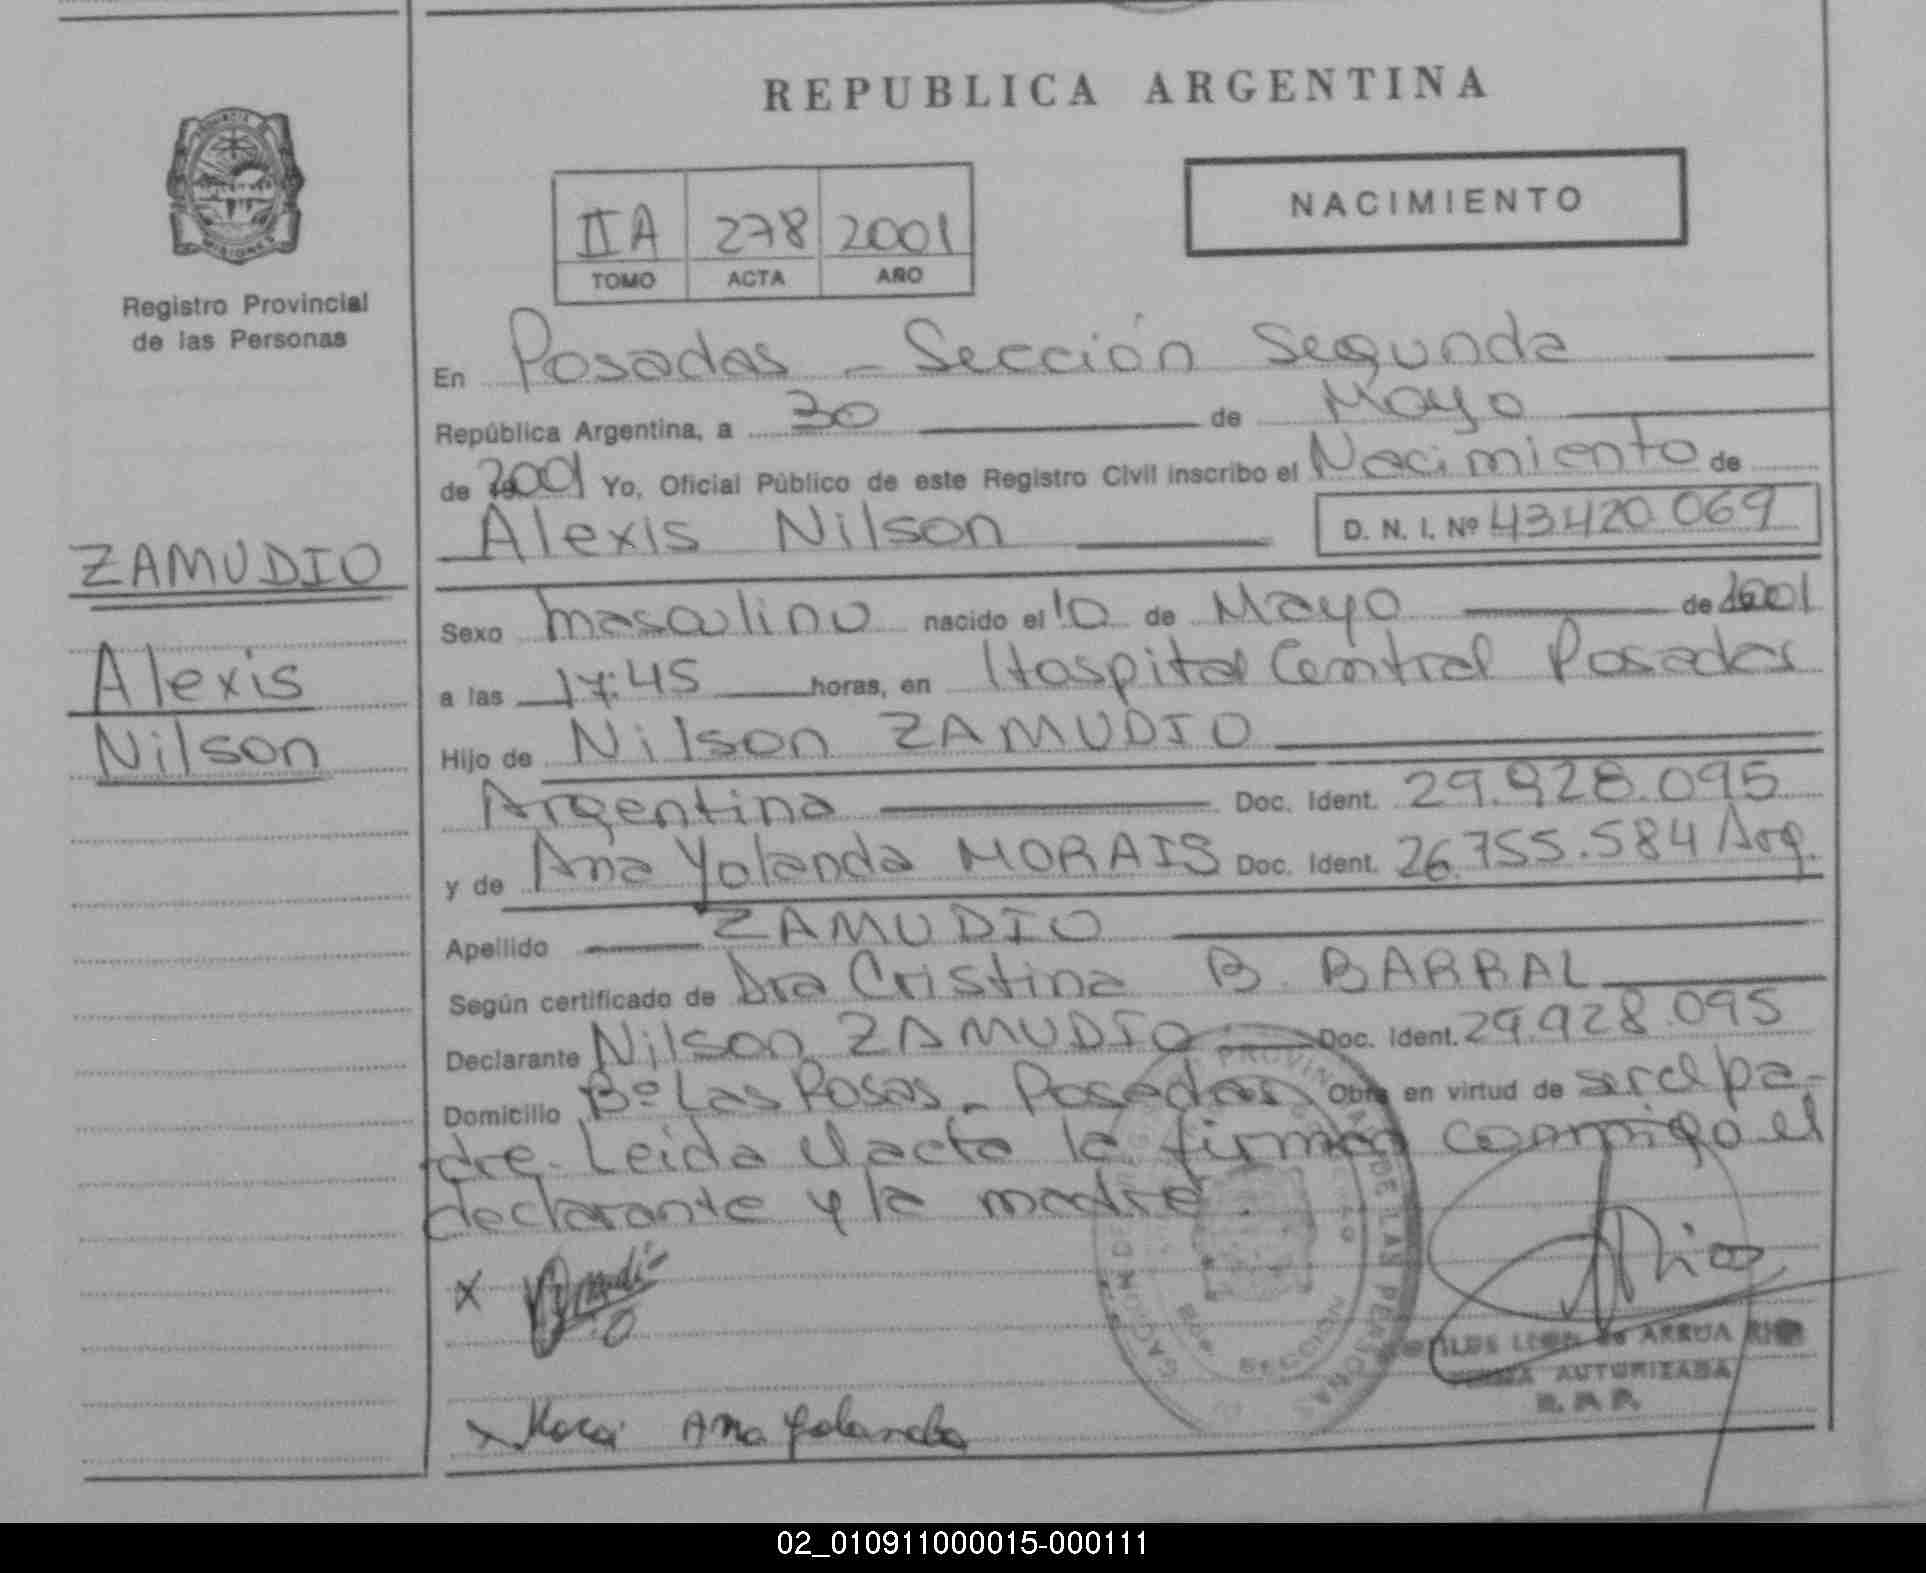 REPUBLICA ARGENTINA
NACIMIENTO
PROVINCIA
MISIONES
Registro Provincial
de las Personas
II A 278 2001
TOMO ACTA AÑO
En Posadas - Sección Segunda
República Argentina, a 30 de Mayo
de 2001 Yo, Oficial Público de este Registro Civil inscribo el Nacimiento de
Alexis Nilson D. N. I. Nº 43.420.069
ZAMUDIO
Alexis
Nilson
Sexo masculino nacido el 10 de Mayo de 2001
a las 17:45 horas, en Hospital Central Posadas
Hijo de Nilson ZAMUDIO
Argentina Doc. Ident. 29.928.095
y de Ana Yolanda MORAIS Doc. Ident. 26.755.584 Arg.
Apellido ZAMUDIO
Según certificado de Dra Cristina B. BARRAL
Declarante Nilson ZAMUDIO Doc. Ident. 29.928.095
Domicilio Bº Las Rosas - Posadas Obra en virtud de ser el pa-
dre. Leida el acta la firman conmigo el
declarante y la madre.
PROVINCIAL DE LAS PERSONAS
SECCION
X
x Ana Yolanda
Rios
LEON de ARRUA RIOS
FIRMA AUTORIZADA
R. P. P.
02_010911000015-000111